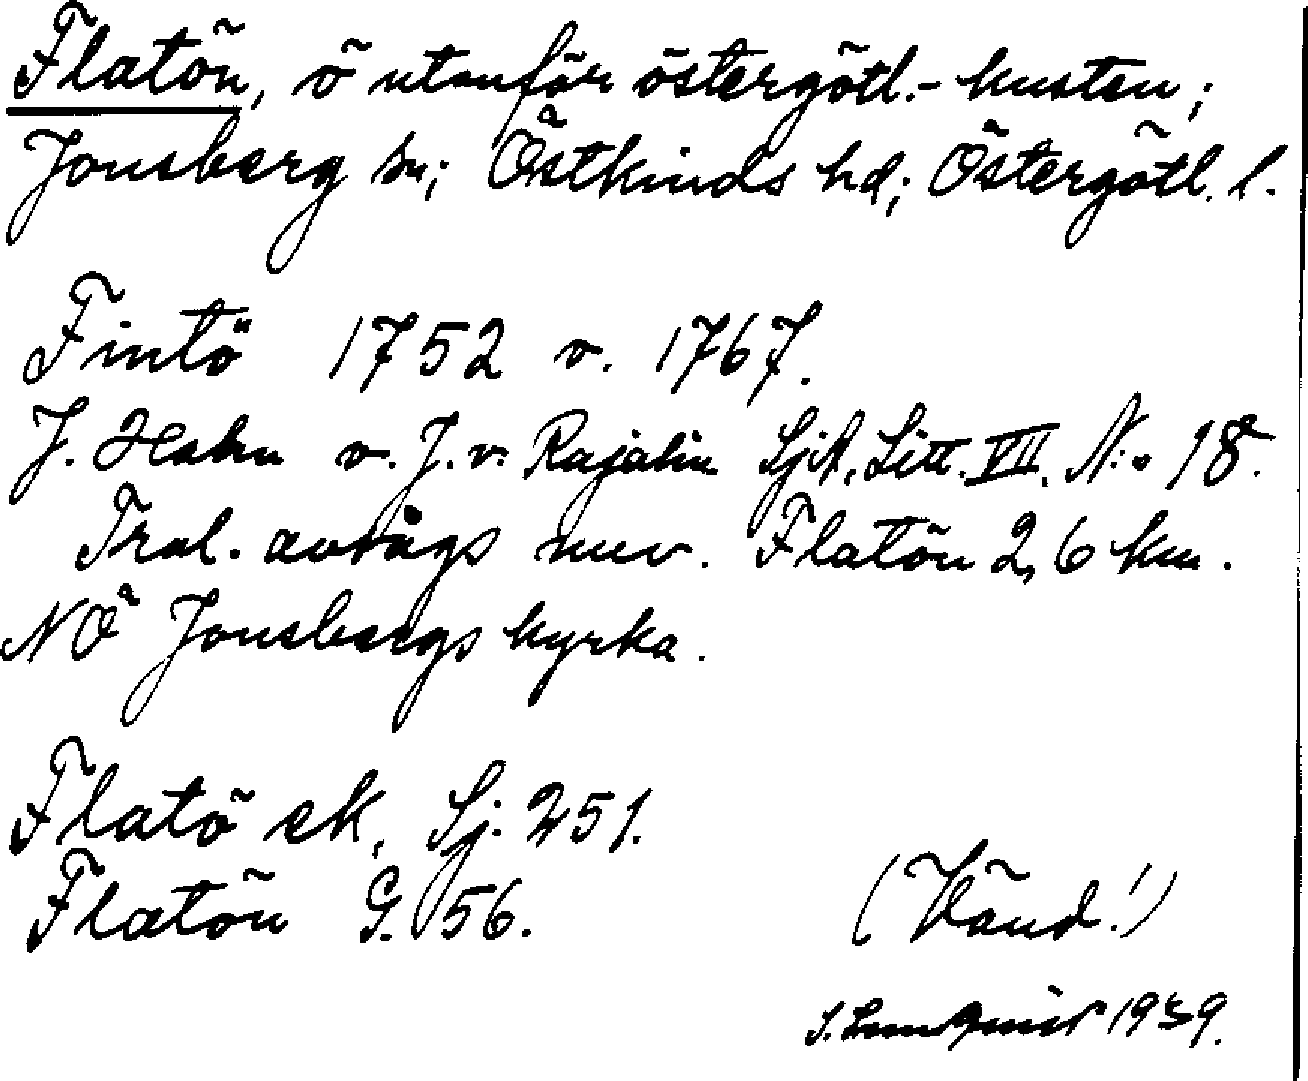 Flatön, ö utanför östergötl.-kusten;
Jonsberg sn; Östkinds hd; Östergötl. l.
Fintö 1752 o. 1767.
J. Hahn o. J. v. Rajalin SjK, Litt. VII. N:o 18.
Trol. avsågs nuv. Flatön 2,6 km.
NÖ Jonsbergs kyrka.
Flatö ek, Sj. 251.
Flatön G. 56.
(Vänd!)
S. Lundquist 1939.